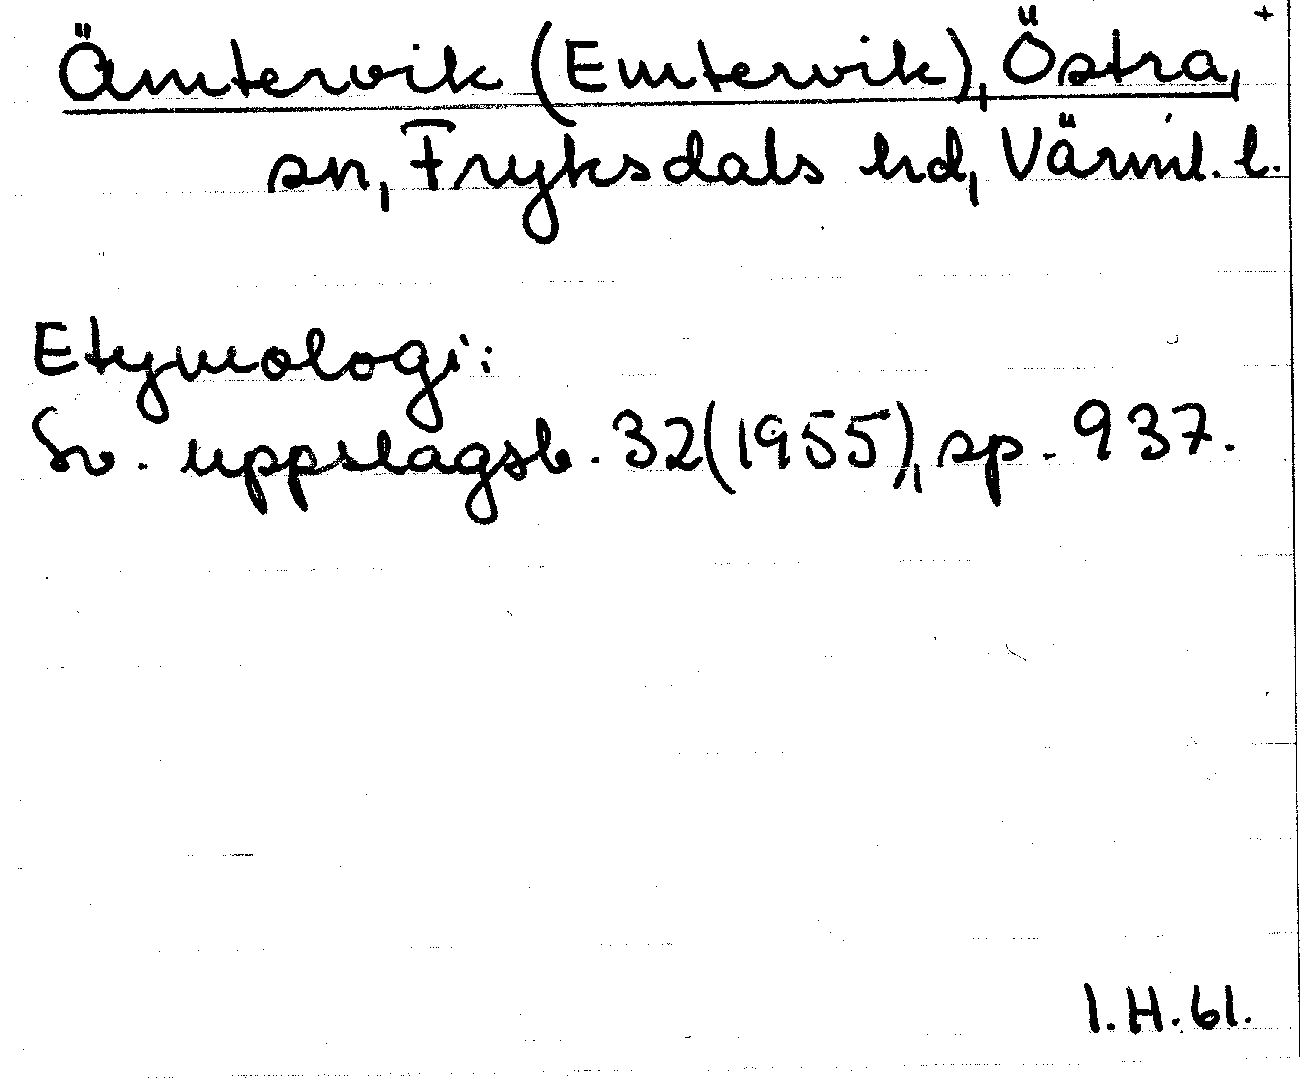 Ämtervik (Emtervik), Östra, +
sn, Fryksdals hd, Värml. l.
Etymologi:
Sv. uppslagsb. 32(1955), sp. 937.
I.H.61.